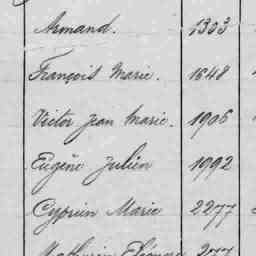 Armand. 1303
François Marie. 1648
Victor Jean Marie. 1906
Eugène Julien 1992
Cyprien Marie 2277
Mathurin Eléonore